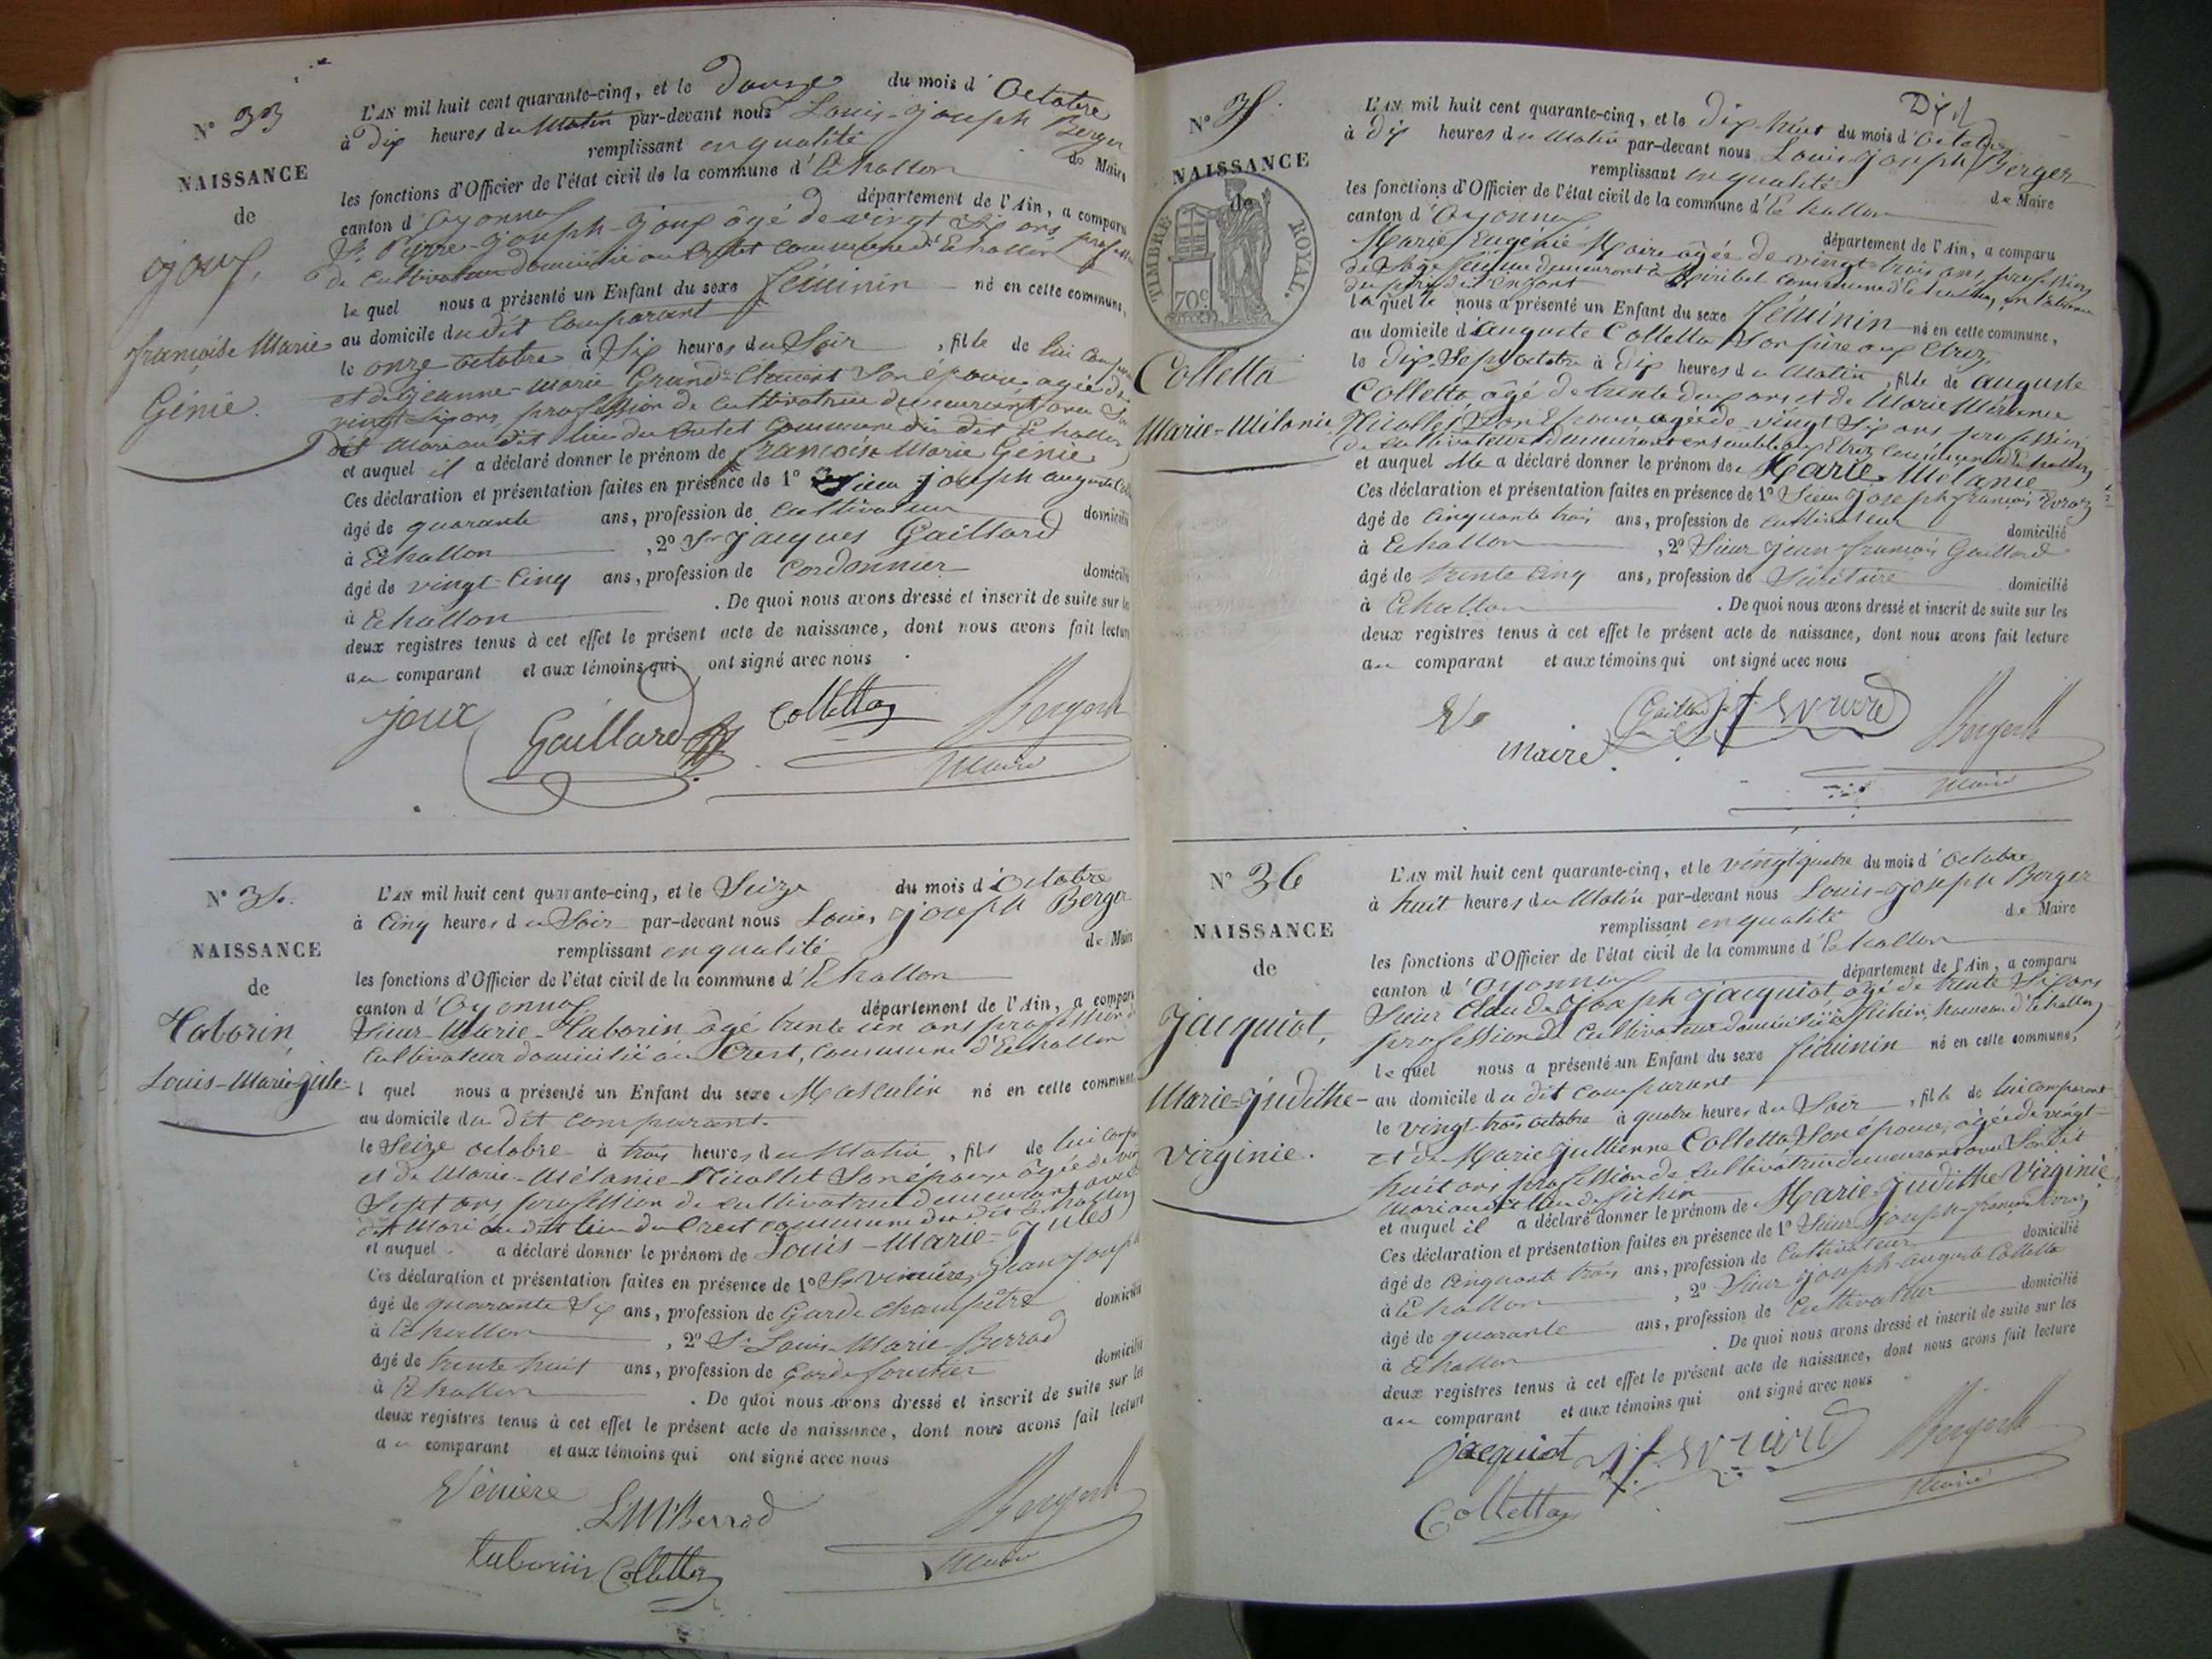 N° 33
NAISSANCE
de
joux,
françoise Marie
Génie.
L'AN mil huit cent quarante-cinq, et le douze du mois d'Octobre
à dix heures du Matin par-devant nous Louis-joseph Berger
remplissant en qualité de Maire
les fonctions d'Officier de l'état civil de la commune d'Echallon
canton d'Oyonnax département de l'Ain, a comparu
Sr. Pierre-joseph-joux âgé de vingt six ans profession
de Cultivateur domicilié au Cretet Commune d'Echallon
le quel nous a présenté un Enfant du sexe féminin né en cette commune,
au domicile du dit Comparant
le onze octobre à Six heures du Soir, fille de lui Comparant
et de jeanne-Marie Grand-Clement Son épouse agée de
vingt six ans profession de Cultivatrice demeurant avec Son
dit Mari au dit lieu du Cretet Commune du dit Echallon
et auquel il a déclaré donner le prénom de françoise Marie Génie
Ces déclaration et présentation faites en présence de 1° Sieur joseph auguste
âgé de quarante ans, profession de Cultivateur domicilié
à Echallon, 2° Sr jacques Gaillard
âgé de vingt-Cinq ans, profession de Cordonnier domicilié
à Echallon. De quoi nous avons dressé et inscrit de suite sur les
deux registres tenus à cet effet le présent acte de naissance, dont nous avons fait lecture
au comparant et aux témoins qui ont signé avec nous
joux Gaillard Colletta Berger
Maire
N° 34.
NAISSANCE
de
Taborin,
Louis-Marie-jule-
L'AN mil huit cent quarante-cinq, et le Seize du mois d'Octobre
à Cinq heures du Soir par-devant nous Louis, joseph Berger
remplissant en qualité de Maire
les fonctions d'Officier de l'état civil de la commune d'Echallon
canton d'Oyonnax département de l'Ain, a comparu
Sieur-Marie-Taborin âgé trente un ans profession de
Cultivateur domicilié au Crest, Commune d'Echallon
l quel nous a présenté un Enfant du sexe Masculin né en cette commune
au domicile du dit comparant.
le Seize octobre à trois heures du Matin, fils de lui Comparant
et de Marie-Mélanie-Nicollet Son épouse âgée de vingt
Sept ans profession de cultivatrice demeurant avec
dit Mari au dit lieu du Crest commune du dit Echallon
et auquel a déclaré donner le prénom de Louis-Marie-Jules
Ces déclaration et présentation faites en présence de 1° Sr Vénière, jean joseph
âgé de quarante Six ans, profession de Garde Champêtre domicilié
à Echallon, 2° Sr Louis-Marie Berrod
âgé de trente huit ans, profession de Garde forestier domicilié
à Echallon. De quoi nous avons dressé et inscrit de suite sur les
deux registres tenus à cet effet le présent acte de naissance, dont nous avons fait lecture
au comparant et aux témoins qui ont signé avec nous
Vénière LM Berrod Berger
taborin Colletta Maire
N° 35.
NAISSANCE
de
TIMBRE ROYAL.
70c
Colletta
Marie-Mélanie
Dix
L'AN mil huit cent quarante-cinq, et le Dix-huit du mois d'Octobre
à dix heures du Matin par-devant nous Louis-joseph Berger
remplissant en qualité de Maire
les fonctions d'Officier de l'état civil de la commune d'Echallon
canton d'Oyonnax département de l'Ain, a comparu
Marie Eugénie Maire âgée de vingt-trois ans profession
de Sage femme demeurant à Miribel commune d'Echallon, en l'absence
du père du dit enfant
laquelle nous a présenté un Enfant du sexe féminin né en cette commune,
au domicile d'auguste Colletta Son père aux
le dix-Sept octobre à dix heures du Matin, fille de auguste
Colletta âgé de trente deux ans et de Marie
Nicollet Son épouse agée de vingt Six ans profession
de cultivateurs demeurant ensemble aux commune d'Echallon
et auquel elle a déclaré donner le prénom de Marie-Mélanie
Ces déclaration et présentation faites en présence de 1° Sieur joseph françois
âgé de Cinquante trois ans, profession de cultivateur domicilié
à Echallon, 2° Sieur jean-françois Gaillard
âgé de trente Cinq ans, profession de Secrétaire domicilié
à Echallon. De quoi nous avons dressé et inscrit de suite sur les
deux registres tenus à cet effet le présent acte de naissance, dont nous avons fait lecture
au comparant et aux témoins qui ont signé avec nous
Maire Gaillard Berger
Maire
N° 36
NAISSANCE
de
Jacquiot,
Marie-judithe-
virginie.
L'AN mil huit cent quarante-cinq, et le vingt quatre du mois d'Octobre
à huit heures du Matin par-devant nous Louis-joseph Berger
remplissant en qualité de Maire
les fonctions d'Officier de l'état civil de la commune d'Echallon
canton d'Oyonnax département de l'Ain, a comparu
Sieur Claude-Joseph jacquiot âgé de trente Six ans
profession de Cultivateur domicilié à hameau d'Echallon
le quel nous a présenté un Enfant du sexe féminin né en cette commune,
au domicile du dit comparant
le vingt-trois octobre à quatre heures du Soir, fille de lui comparant
et de Marie jullienne Colletta Son épouse, âgée de vingt-
huit ans profession de cultivatrice demeurant avec Son dit
Mari au dit lieu de
et auquel il a déclaré donner le prénom de Marie-judithe Virginie
Ces déclaration et présentation faites en présence de 1° Sieur joseph-françois
âgé de cinquante trois ans, profession de Cultivateur domicilié
à Echallon, 2° Sieur joseph-auguste Colletta
âgé de quarante ans, profession de Cultivateur domicilié
à Echallon. De quoi nous avons dressé et inscrit de suite sur les
deux registres tenus à cet effet le présent acte de naissance, dont nous avons fait lecture
au comparant et aux témoins qui ont signé avec nous
jacquiot Berger
Colletta Maire